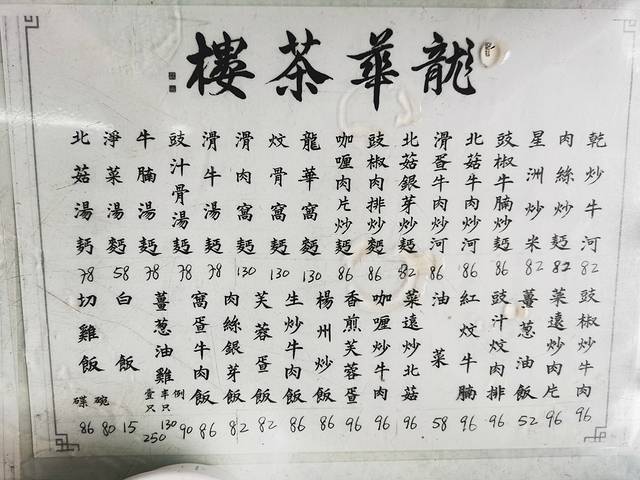 龍華茶樓
乾炒牛河 82
肉絲炒麵 82
星洲炒米 82
豉椒牛腩炒麵 86
北菇牛肉炒河 86
滑蛋牛肉炒河 86
北菇銀芽炒麵 82
豉椒肉排炒麵 86
咖喱肉片炒麵 86
龍華窩麵 130
炆骨窩麵 130
滑肉窩麵 130
滑牛湯麵 78
豉汁骨湯麵 78
牛腩湯麵 78
淨菜湯麵 58
北菇湯麵 78
豉椒炒牛肉 96
菜遠炒肉片 96
薑葱油飯 52
豉汁炆肉排 96
紅炆牛腩 96
油菜 58
菜遠炒北菇 96
咖喱炒牛肉 96
香煎芙蓉蛋 96
楊州炒飯 86
生炒牛肉飯 86
芙蓉蛋飯 82
肉絲銀芽飯 82
窩蛋牛肉飯 86
薑葱油雞 例 90 半只 130 壹只 250
白飯 15
切雞飯 碗 80 碟 86